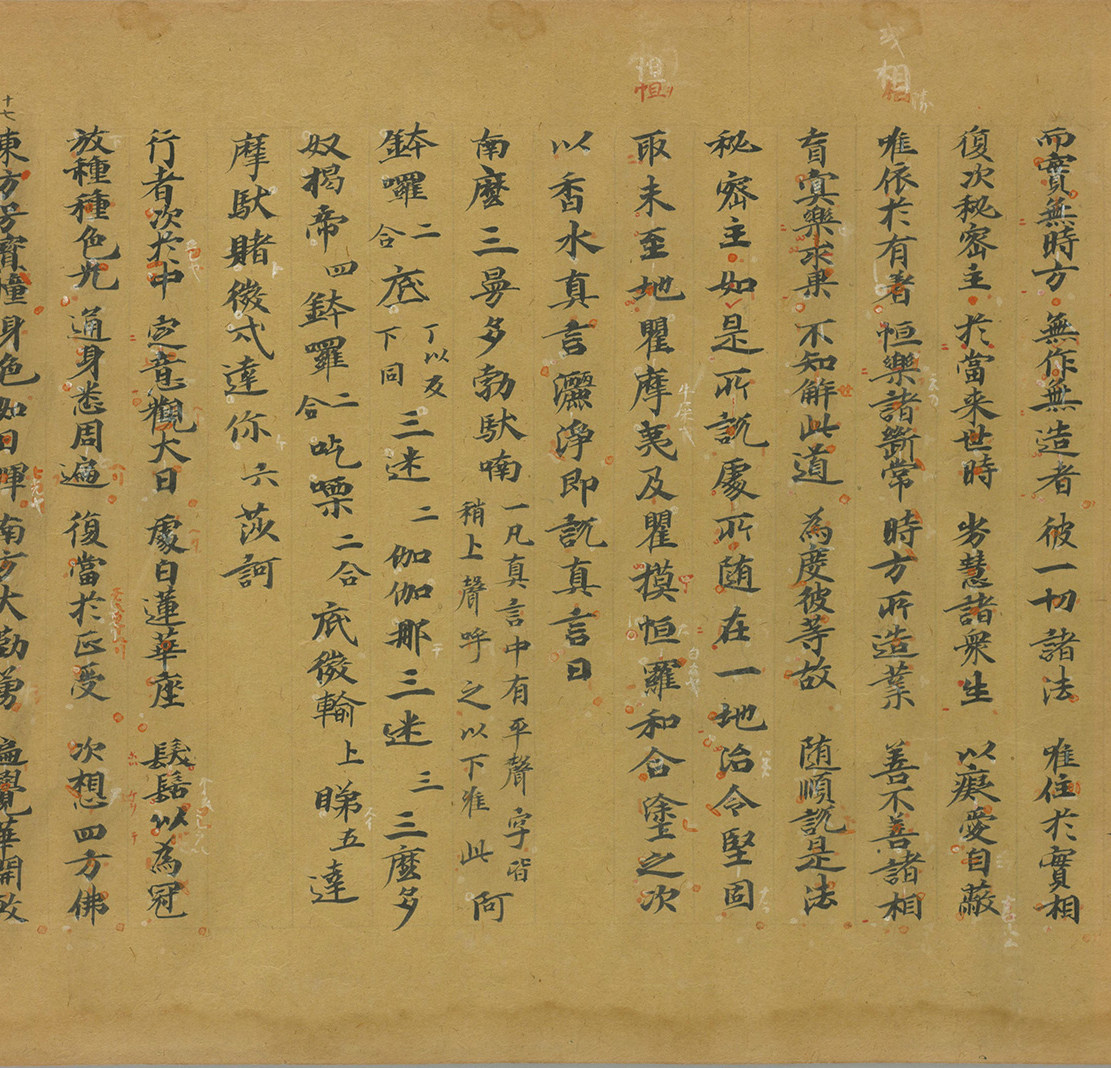 而實無時方 無作無造者 彼一切諸法 唯住於實相
復次秘密主 於當来世時 劣慧諸衆生 以癡愛自蔽
唯依於有著 恒樂諸斷常 時方所造業 善不善諸相
盲冥樂求果 不知解此道 為度彼等故 随順説是法
秘密主如是所説處所随在一地治令堅固
取未至地瞿摩夷及瞿摸怛羅和合塗之次
以香水真言灑淨即説真言曰
南麼三曼多勃馱喃一凡真言中有平聲字皆稍上聲呼之以下准此阿
鉢囉二合底丁以反下同三迷二伽伽那三迷三三麼多
奴揭帝四鉢囉二合吃㗚二合底微輸上睇五達
摩馱賭微弋達你六莎訶
行者次於中 定意觀大日 處白蓮華座 髮髻以為冠
放種種色光 通身悉周遍 復當於正受 次想四方佛
東方号寳幢身色如日暉 南方大勤勇 遍覺華開敷
十七
相
怛